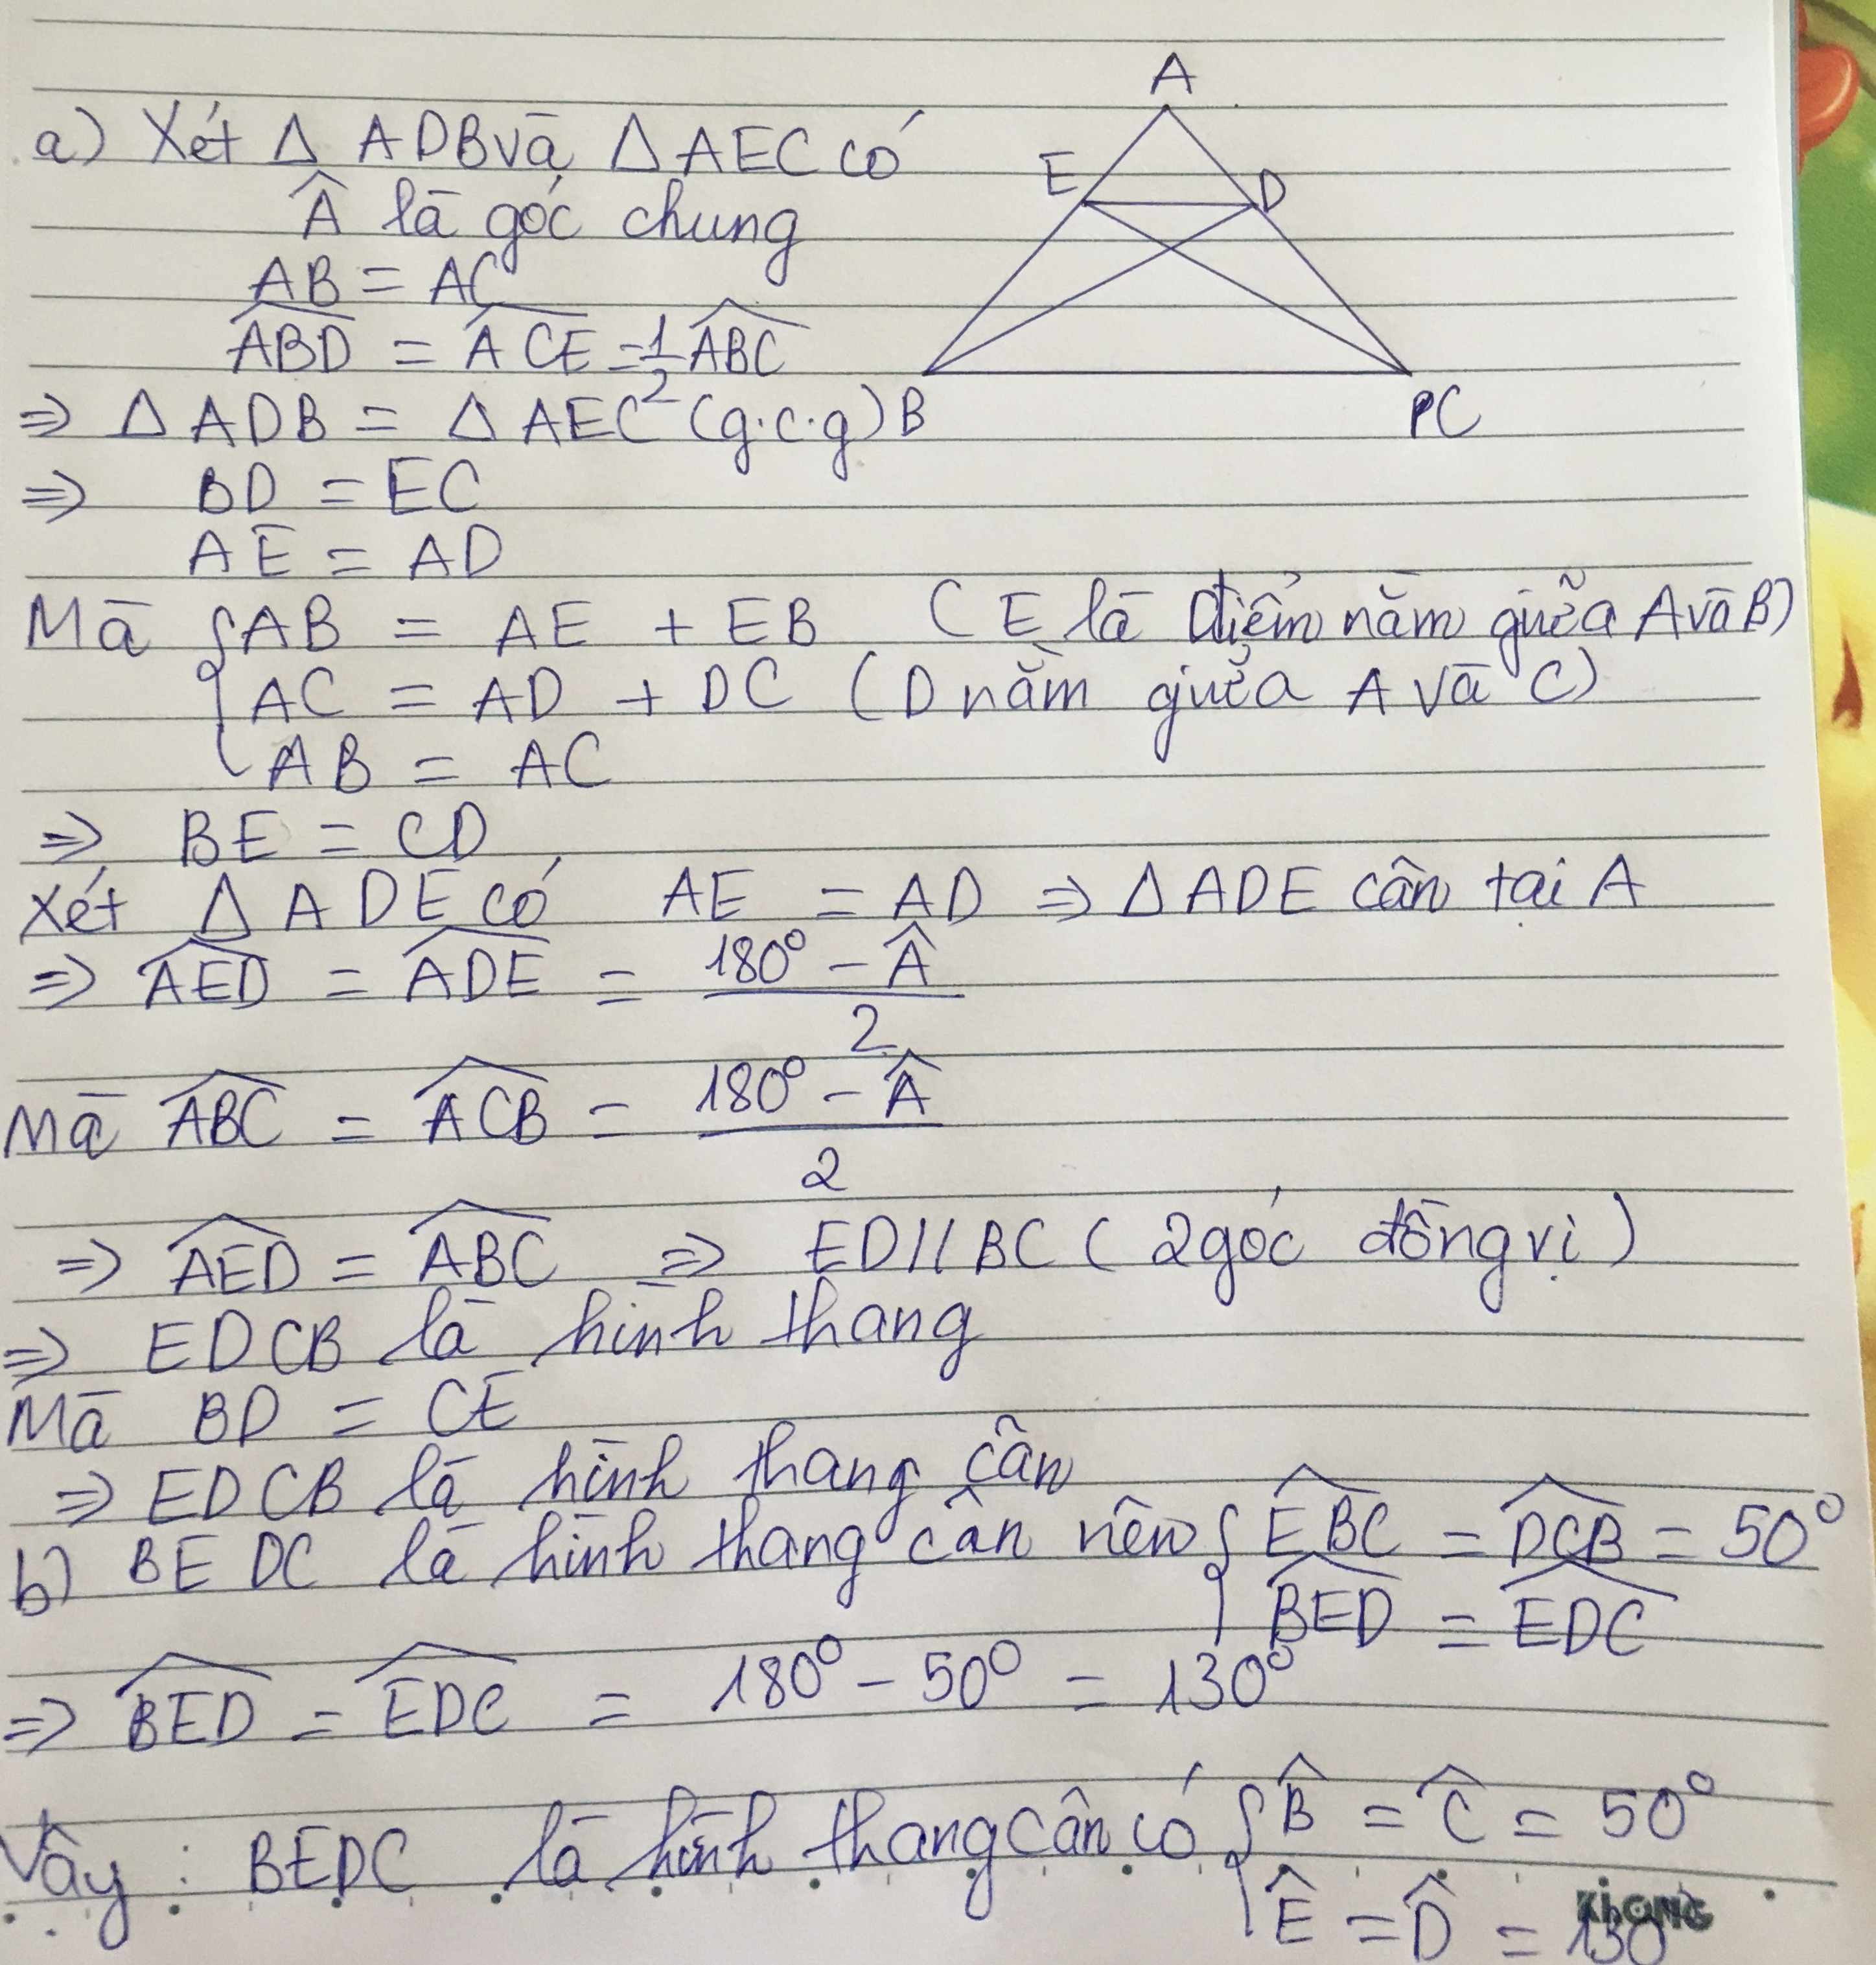 A
E
D
B
PC
a) Xét Δ ADB và Δ AEC có
Â là góc chung
AB = AC
ABD̂ = ACÊ = 1/2 ABĈ
⇒ Δ ADB = Δ AEC (g.c.g)
⇒ BD = EC
AE = AD
Mà { AB = AE + EB ( E là điểm nằm giữa A và B)
AC = AD + DC (D nằm giữa A và C)
AB = AC
⇒ BE = CD
Xét Δ ADE có AE = AD ⇒ Δ ADE cân tại A
⇒ AED̂ = ADÊ = (180° - Â)/2
Mà ABĈ = ACB̂ = (180° - Â)/2
⇒ AED̂ = ABĈ ⇒ ED // BC ( 2 góc đồng vị )
⇒ EDCB là hình thang
Mà BD = CE
⇒ EDCB là hình thang cân
b) BEDC là hình thang cân nên { EBĈ = DCB̂ = 50°
BED̂ = EDĈ
⇒ BED̂ = EDĈ = 180° - 50° = 130°
Vậy : BEDC là hình thang cân có { B̂ = Ĉ = 50°
Ê = D̂ = 130°
KLONG